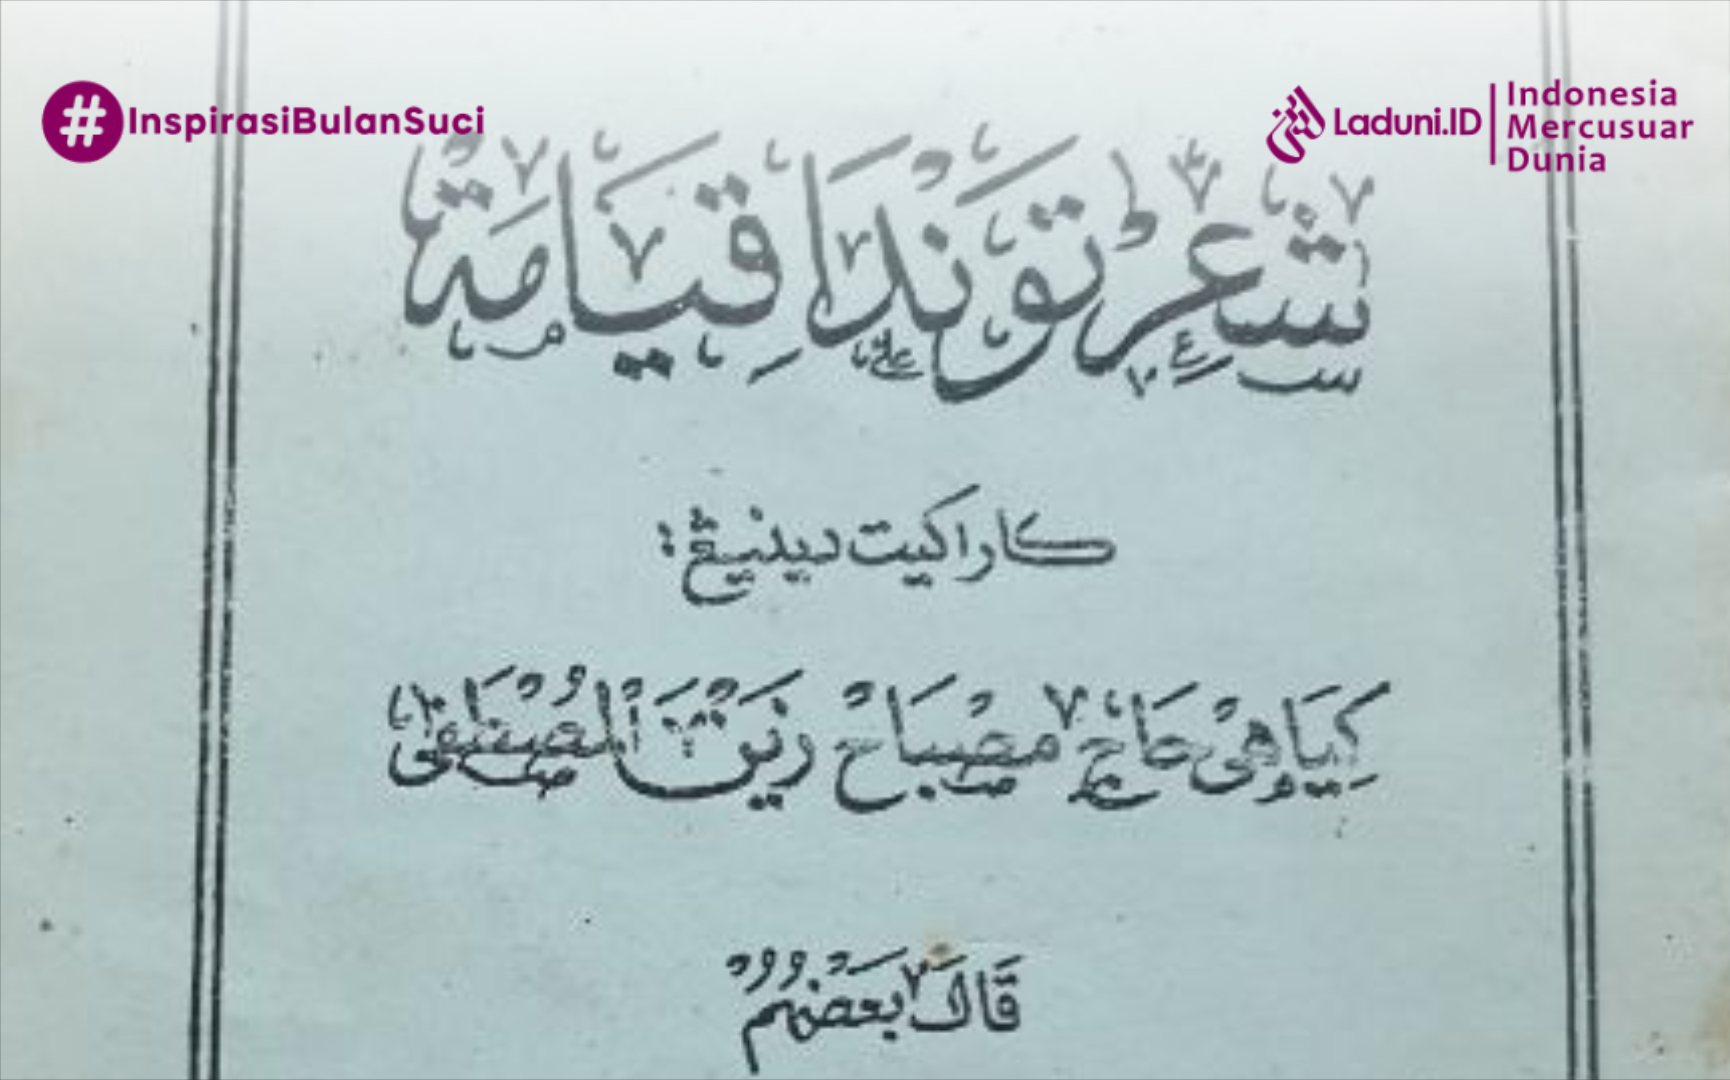 #InspirasiBulanSuci
Laduni.ID
Indonesia
Mercusuar
Dunia
شَعِرْ تَوَنْدَا قِيَامَةْ
كاراكيت دينيڠ :
كِيَاهِيْ حَاجْ مِصْبَاحْ زَيْنُ الْمُصْطَفَى
قَالَ بَعْضُهُمْ